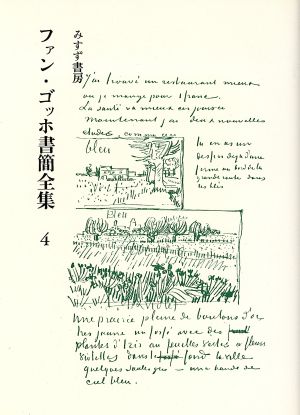 みすず書房
ファン・ゴッホ書簡全集 4
J'ai trouvé un restaurant mieux
ou je mange pour 1 franc.
La santé va mieux ces jours ci
Maintenant j'ai deux nouvelles
etudes comme ceci
bleu
tu en as un
dessin déja d'une
ferme au bord de la
grande route dans
les blés
Bleu
Une prairie pleine de boutons d'or
tres jaune un fossé avec des
plantes d'Iris au feuilles vertes a fleurs
violettes dans le fond la ville
quelques saules gris — une bande de
ciel bleu.